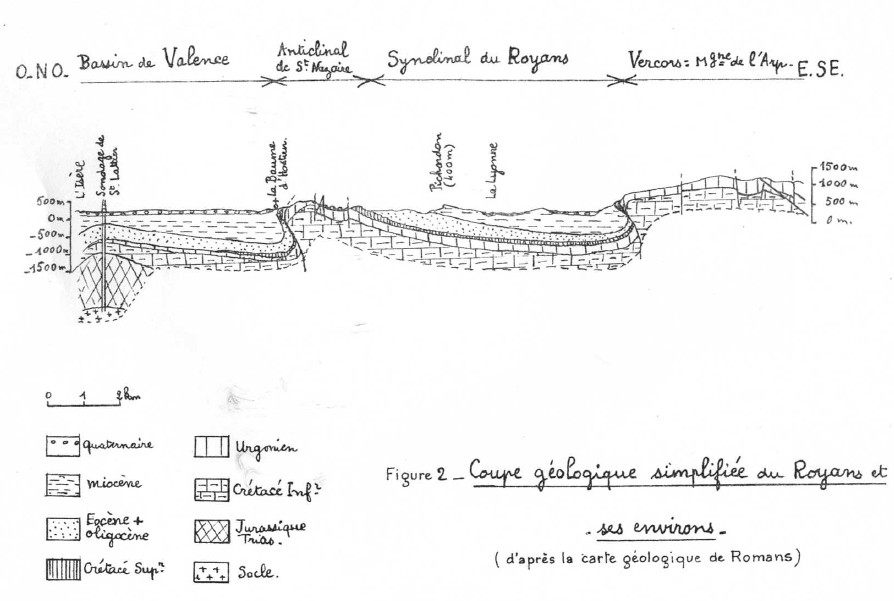 O.NO. Bassin de Valence
Anticlinal
de St Nazaire
Synclinal du Royans
Vercors: Mgne de l'Arp. E.SE.
L'Isère
Sondage de
St Lattier
la Baume
d'Hostun.
Pichondon
(400m)
La Lyonne
500m
0m
-500m
-1000m
-1500m
1500m
1000m
500m
0 m.
0 1 2km
quaternaire
miocène
Eocène +
oligocène
Crétacé Supr
Urgonien
Crétacé Infr
Jurassique
Trias.
Socle.
Figure 2 _ Coupe géologique simplifiée du Royans et
- ses environs -
( d'après la carte géologique de Romans )